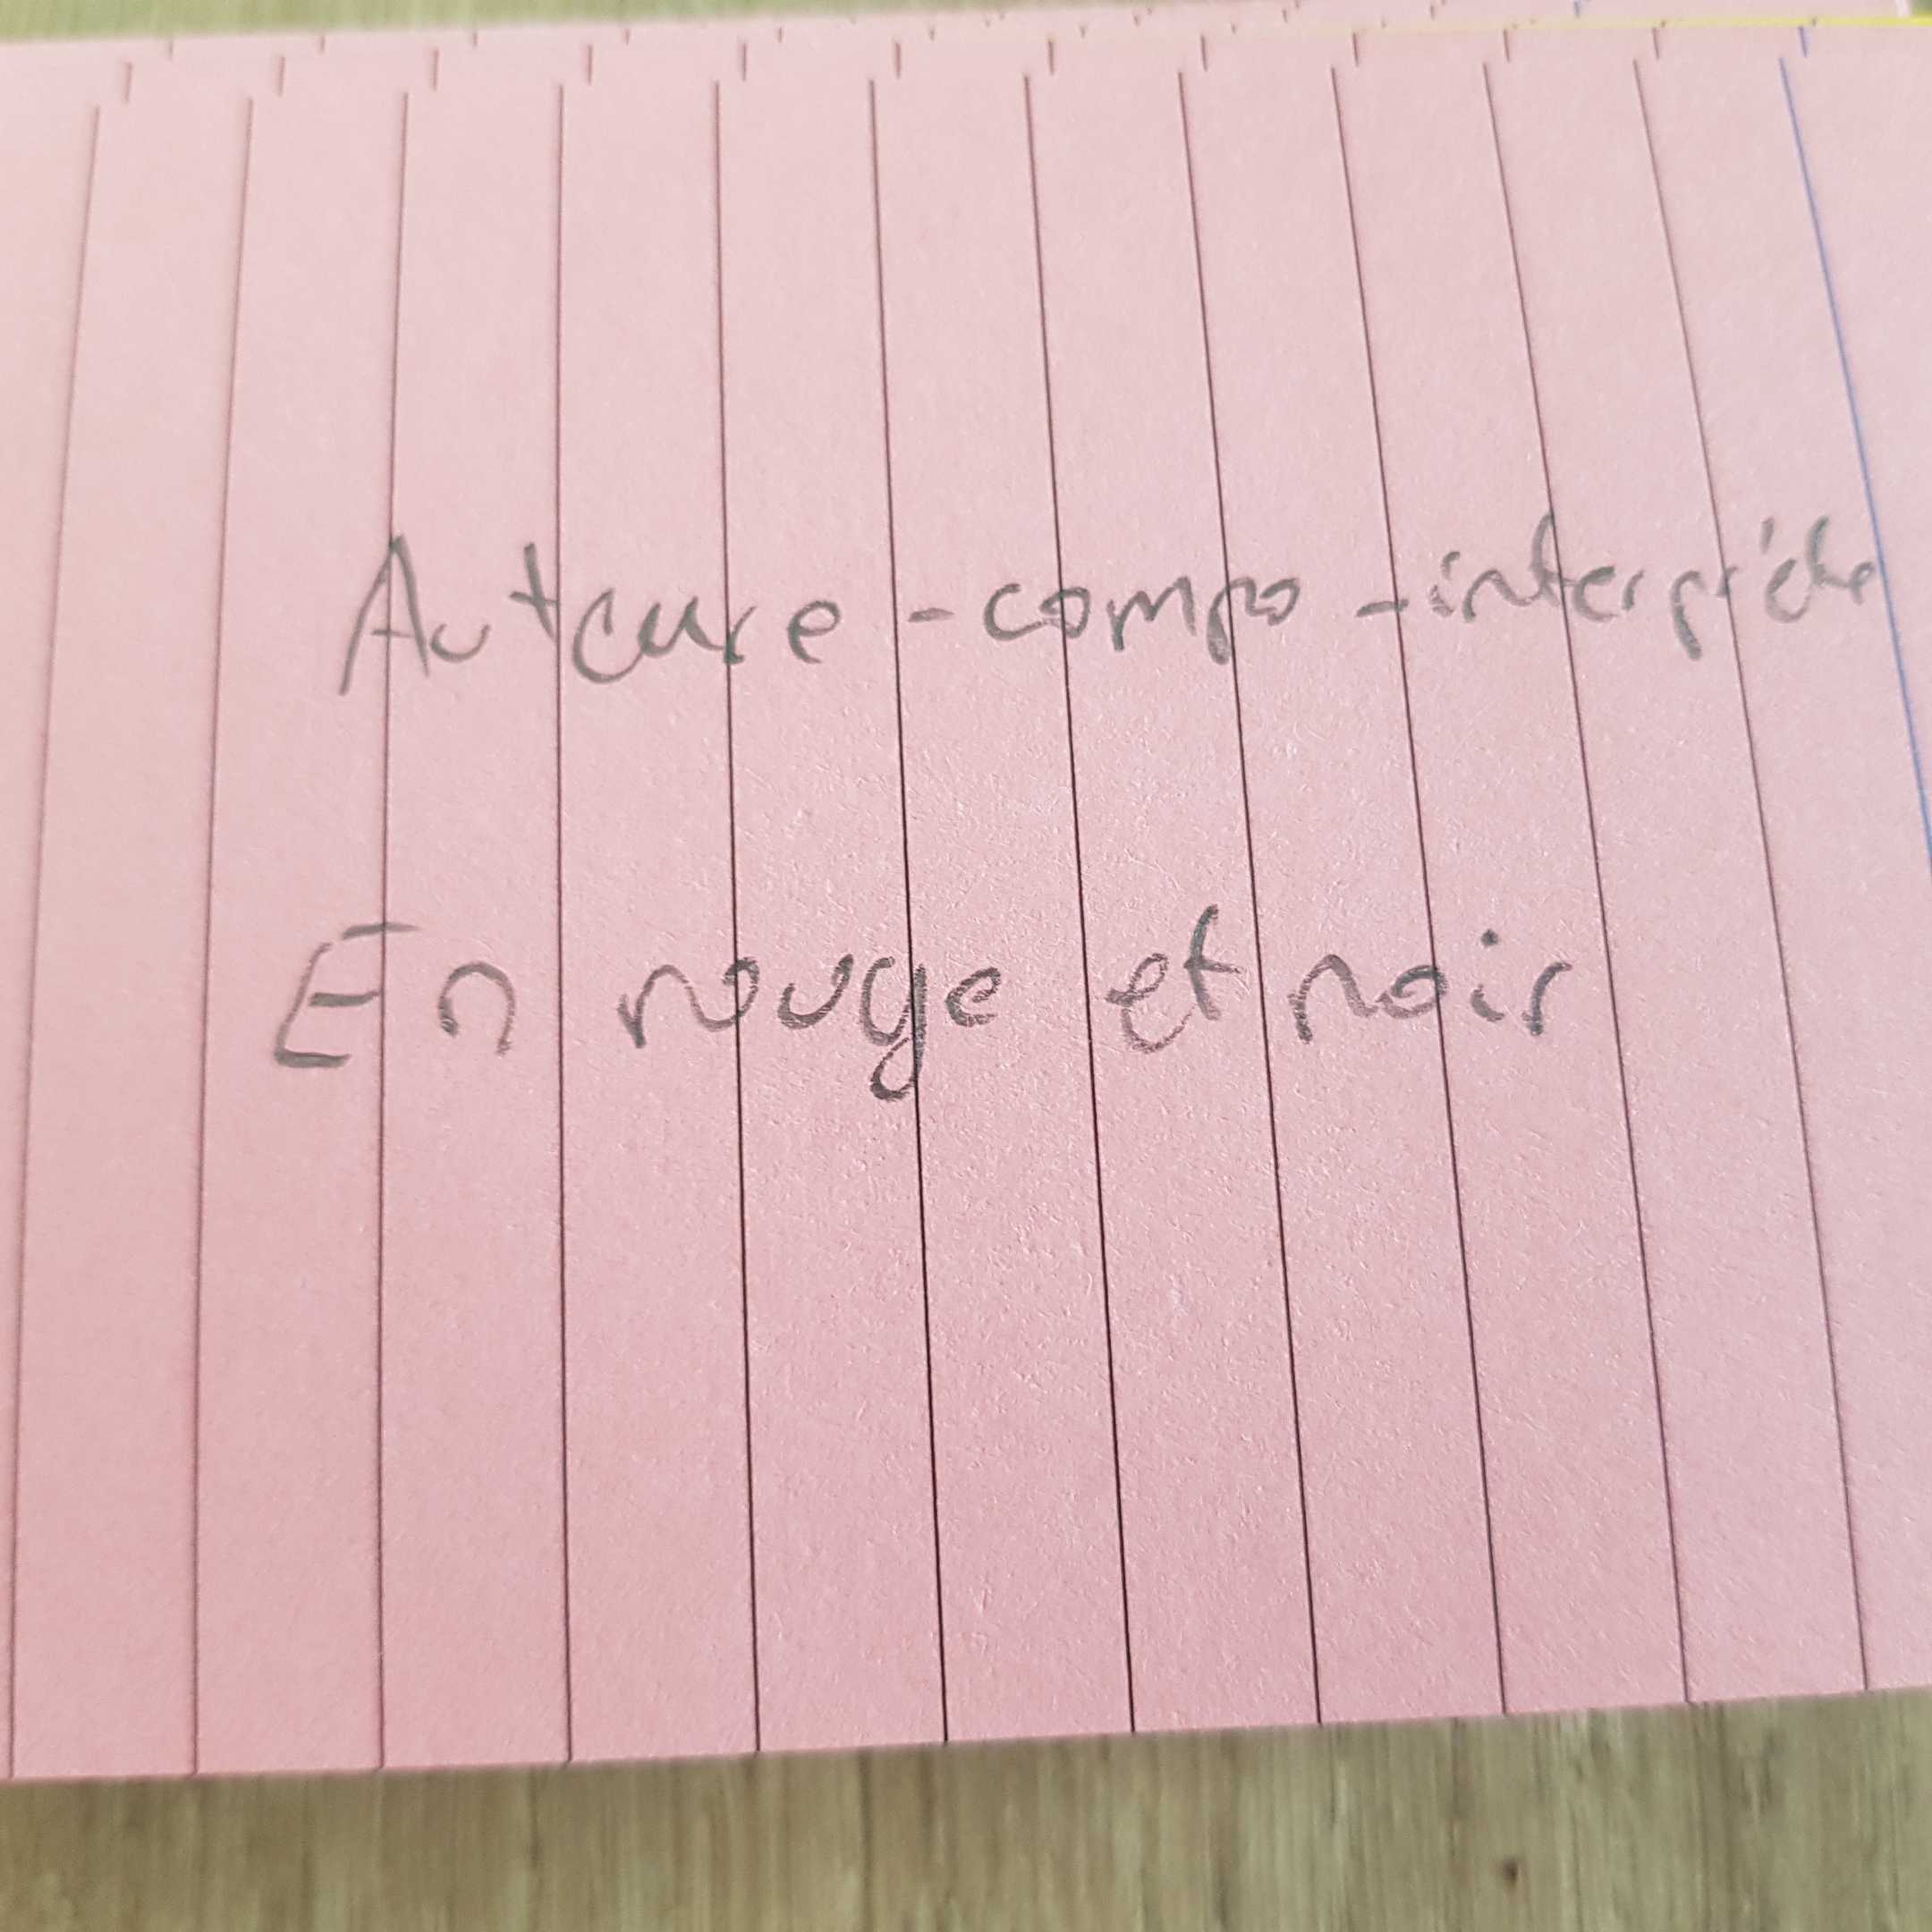 Auteure-compo-interprète
En rouge et noir